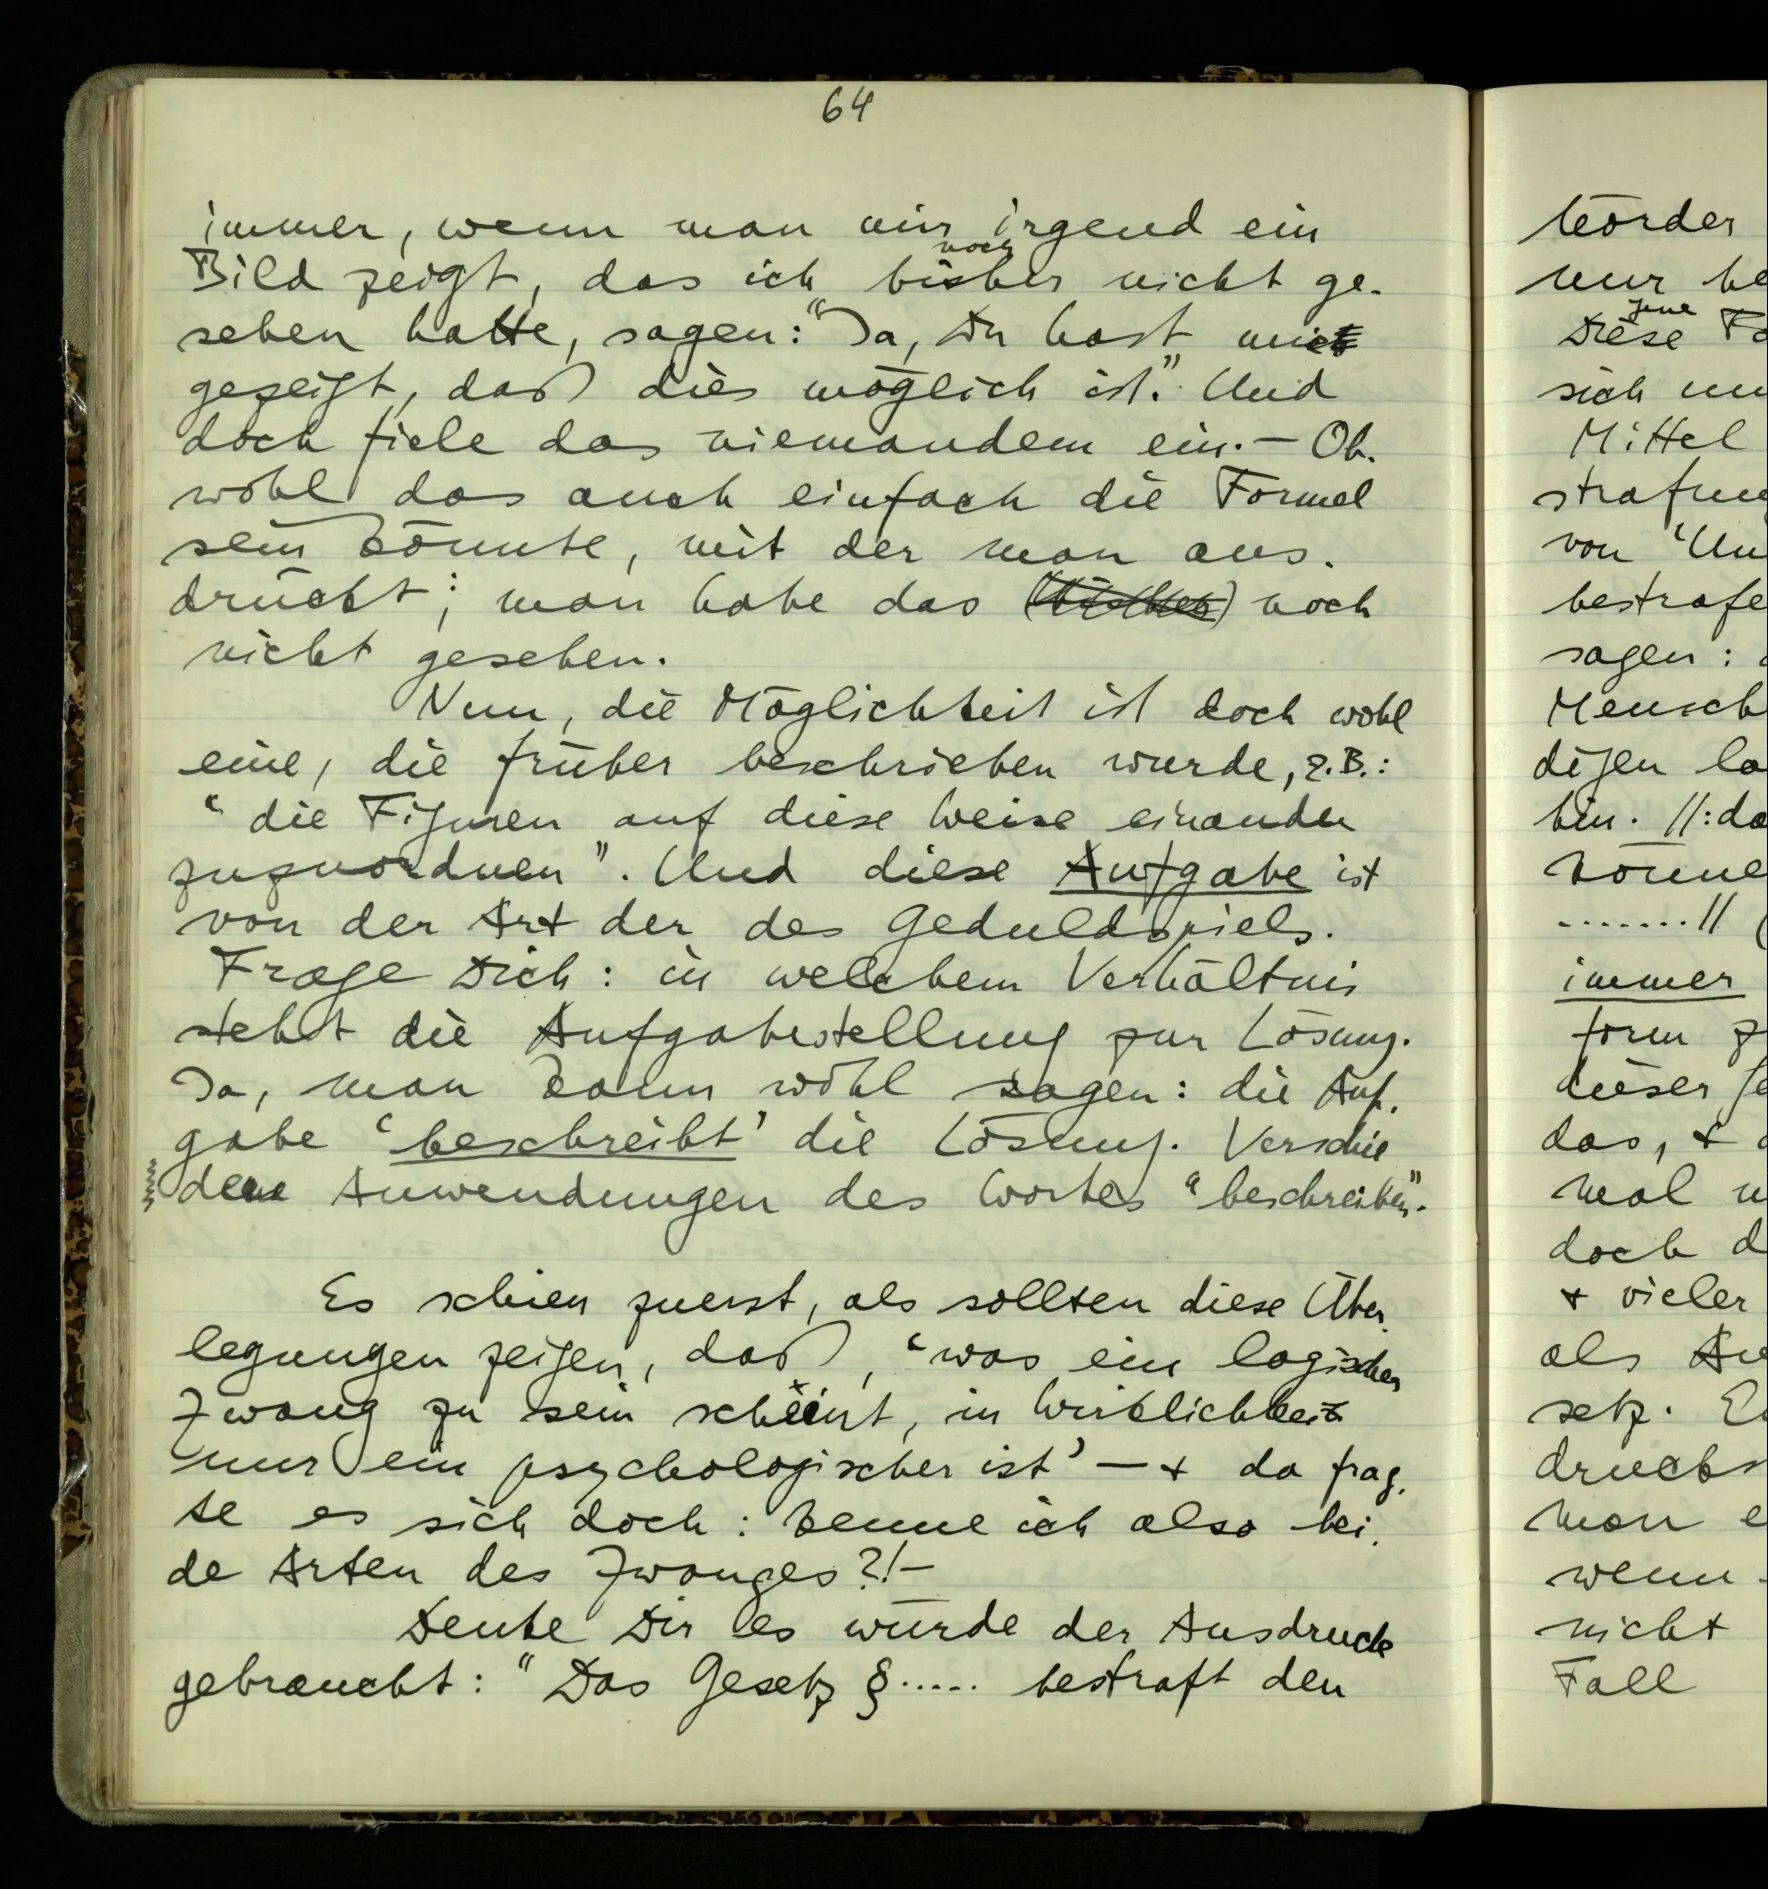 64
immer, wenn man mir irgend ein
noch
Bild zeigt, das ich bisher nicht ge-
sehen hatte, sagen: "Ja, Du hast mir
gezeigt, daß dies möglich ist." Und
doch fiele das niemandem ein. – Ob-
wohl das auch einfach die Formel
sein könnte, mit der man aus-
drückt; man habe das noch
nicht gesehen.
Nun, die Möglichkeit ist doch wohl
eine, die früher beschrieben wurde, z.B.:
"die Figuren auf diese Weise einander
zuzuordnen". Und diese Aufgabe ist
von der Art der des Geduldspiels.
Frage Dich: in welchem Verhältnis
steht die Aufgabestellung zur Lösung.
Ja, man kann wohl sagen: die Auf-
gabe 'beschreibt' die Lösung. Verschie
dene Anwendungen des Wortes "beschreiben".
Es schien zuerst, als sollten diese Über-
legungen zeigen, daß, 'was ein logischer
Zwang zu sein scheint, in Wirklichkeit
nur ein psychologischer ist' – + da frag-
te es sich doch: kenne ich also bei-
de Arten des Zwanges?! –
Denke Dir es würde der Ausdruck
gebraucht: "Das Gesetz § ..... bestraft den
Mörder
nur
jene
Diese
sich
Mittel
von
sagen:
Mensch
digen
bin. //:
.......//
immer
form
dieser
das, +
mal
doch
+ vieler
als
setz.
man
wenn
nicht
Fall